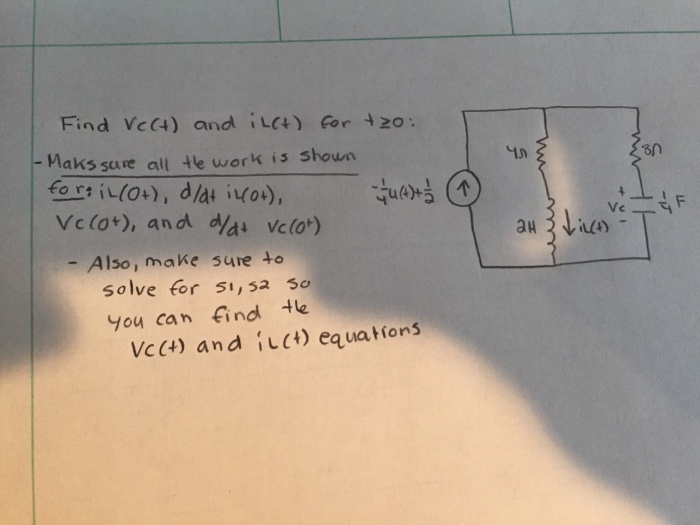 Find Vc(t) and iL(t) for t≥0:
- Maks sure all the work is shown
for: iL(0+), d/dt iL(0+),
Vc(0+), and d/dt Vc(0+)
- Also, make sure to
solve for s1, s2 so
you can find the
Vc(t) and iL(t) equations
-1/4u(t)+1/2
4Ω
8Ω
2H
iL(t)
+
Vc
-
1/4 F